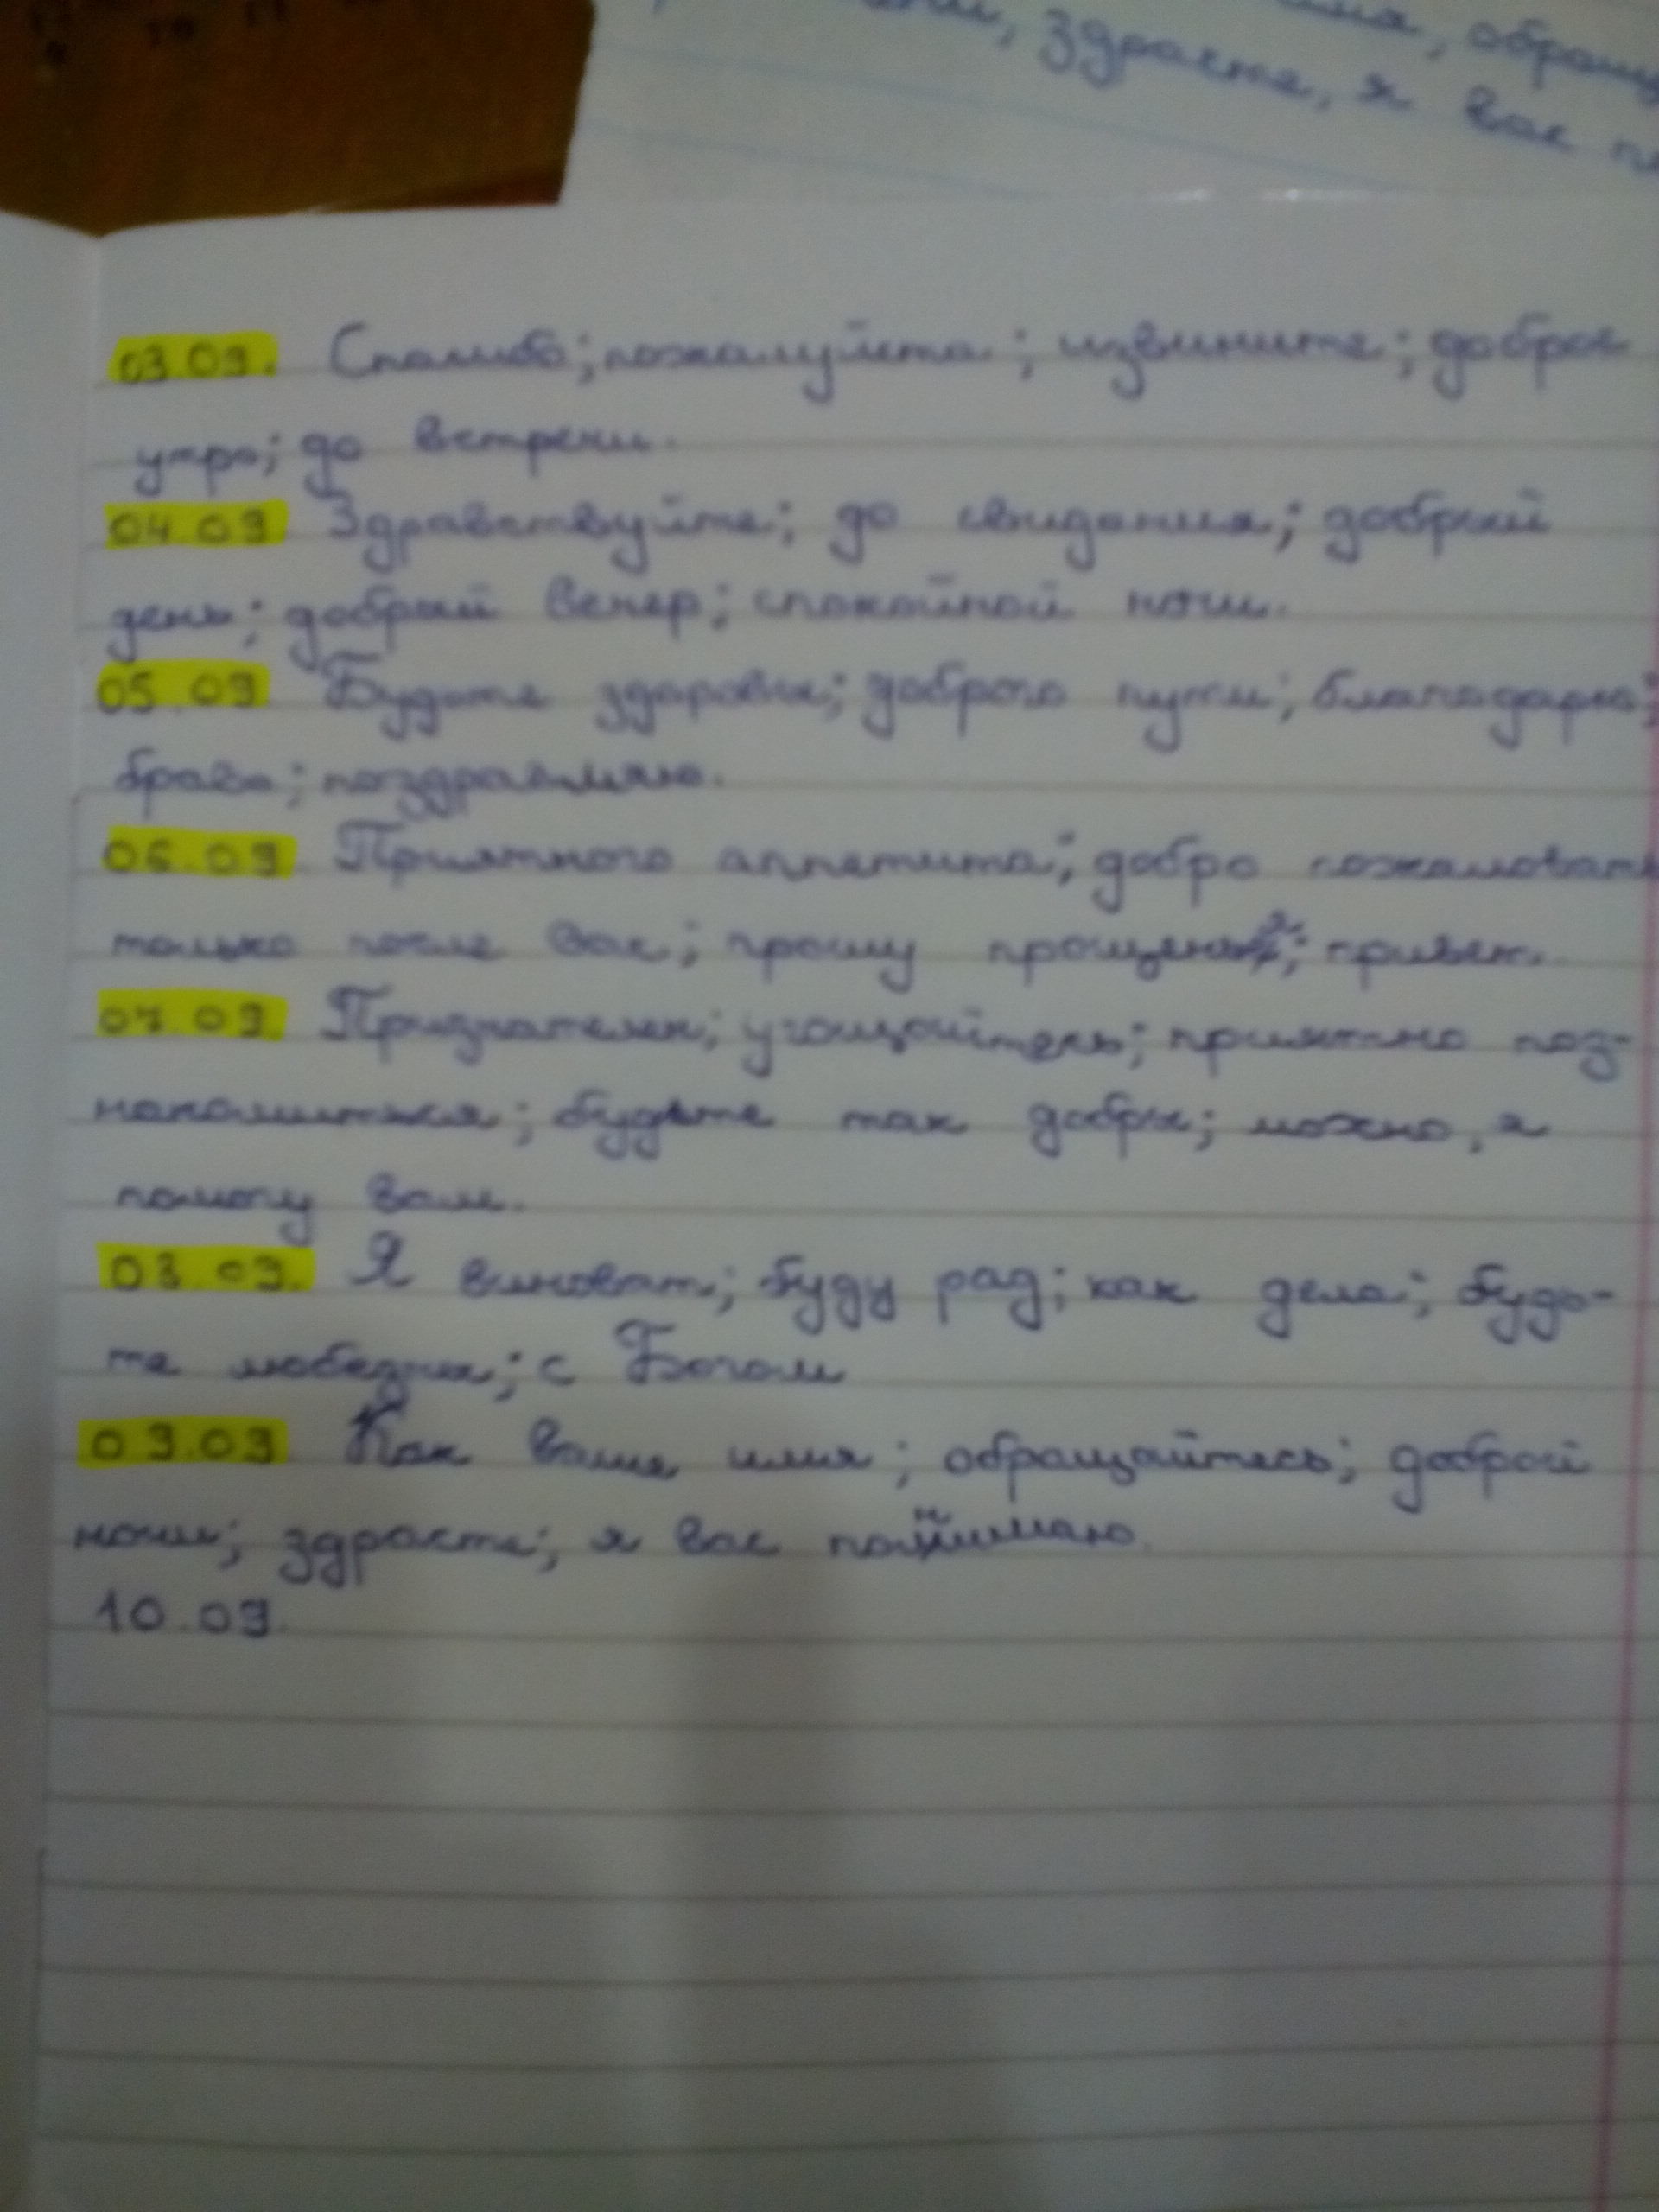 обращ
здрасте, я вас п
03.09. Спасибо; пожалуйста; извините; доброе
утро; до встречи.
04.09 Здравствуйте; до свидания; добрый
день; добрый вечер; спокойной ночи.
05.09 Будьте здоровы; доброго пути; благодарю;
браво; поздравляю.
06.09 Приятного аппетита; добро пожаловать
только после вас; прошу прощения; привет.
07.09. Признателен; угощайтесь; приятно поз-
накомиться; будьте так добры; можно, я
помогу вам.
08.09. Я виноват; буду рад; как дела; будь-
те любезны; с Богом
09.09 Как ваше имя; обращайтесь; доброй
ночи; здрасте; я вас понимаю.
10.09.